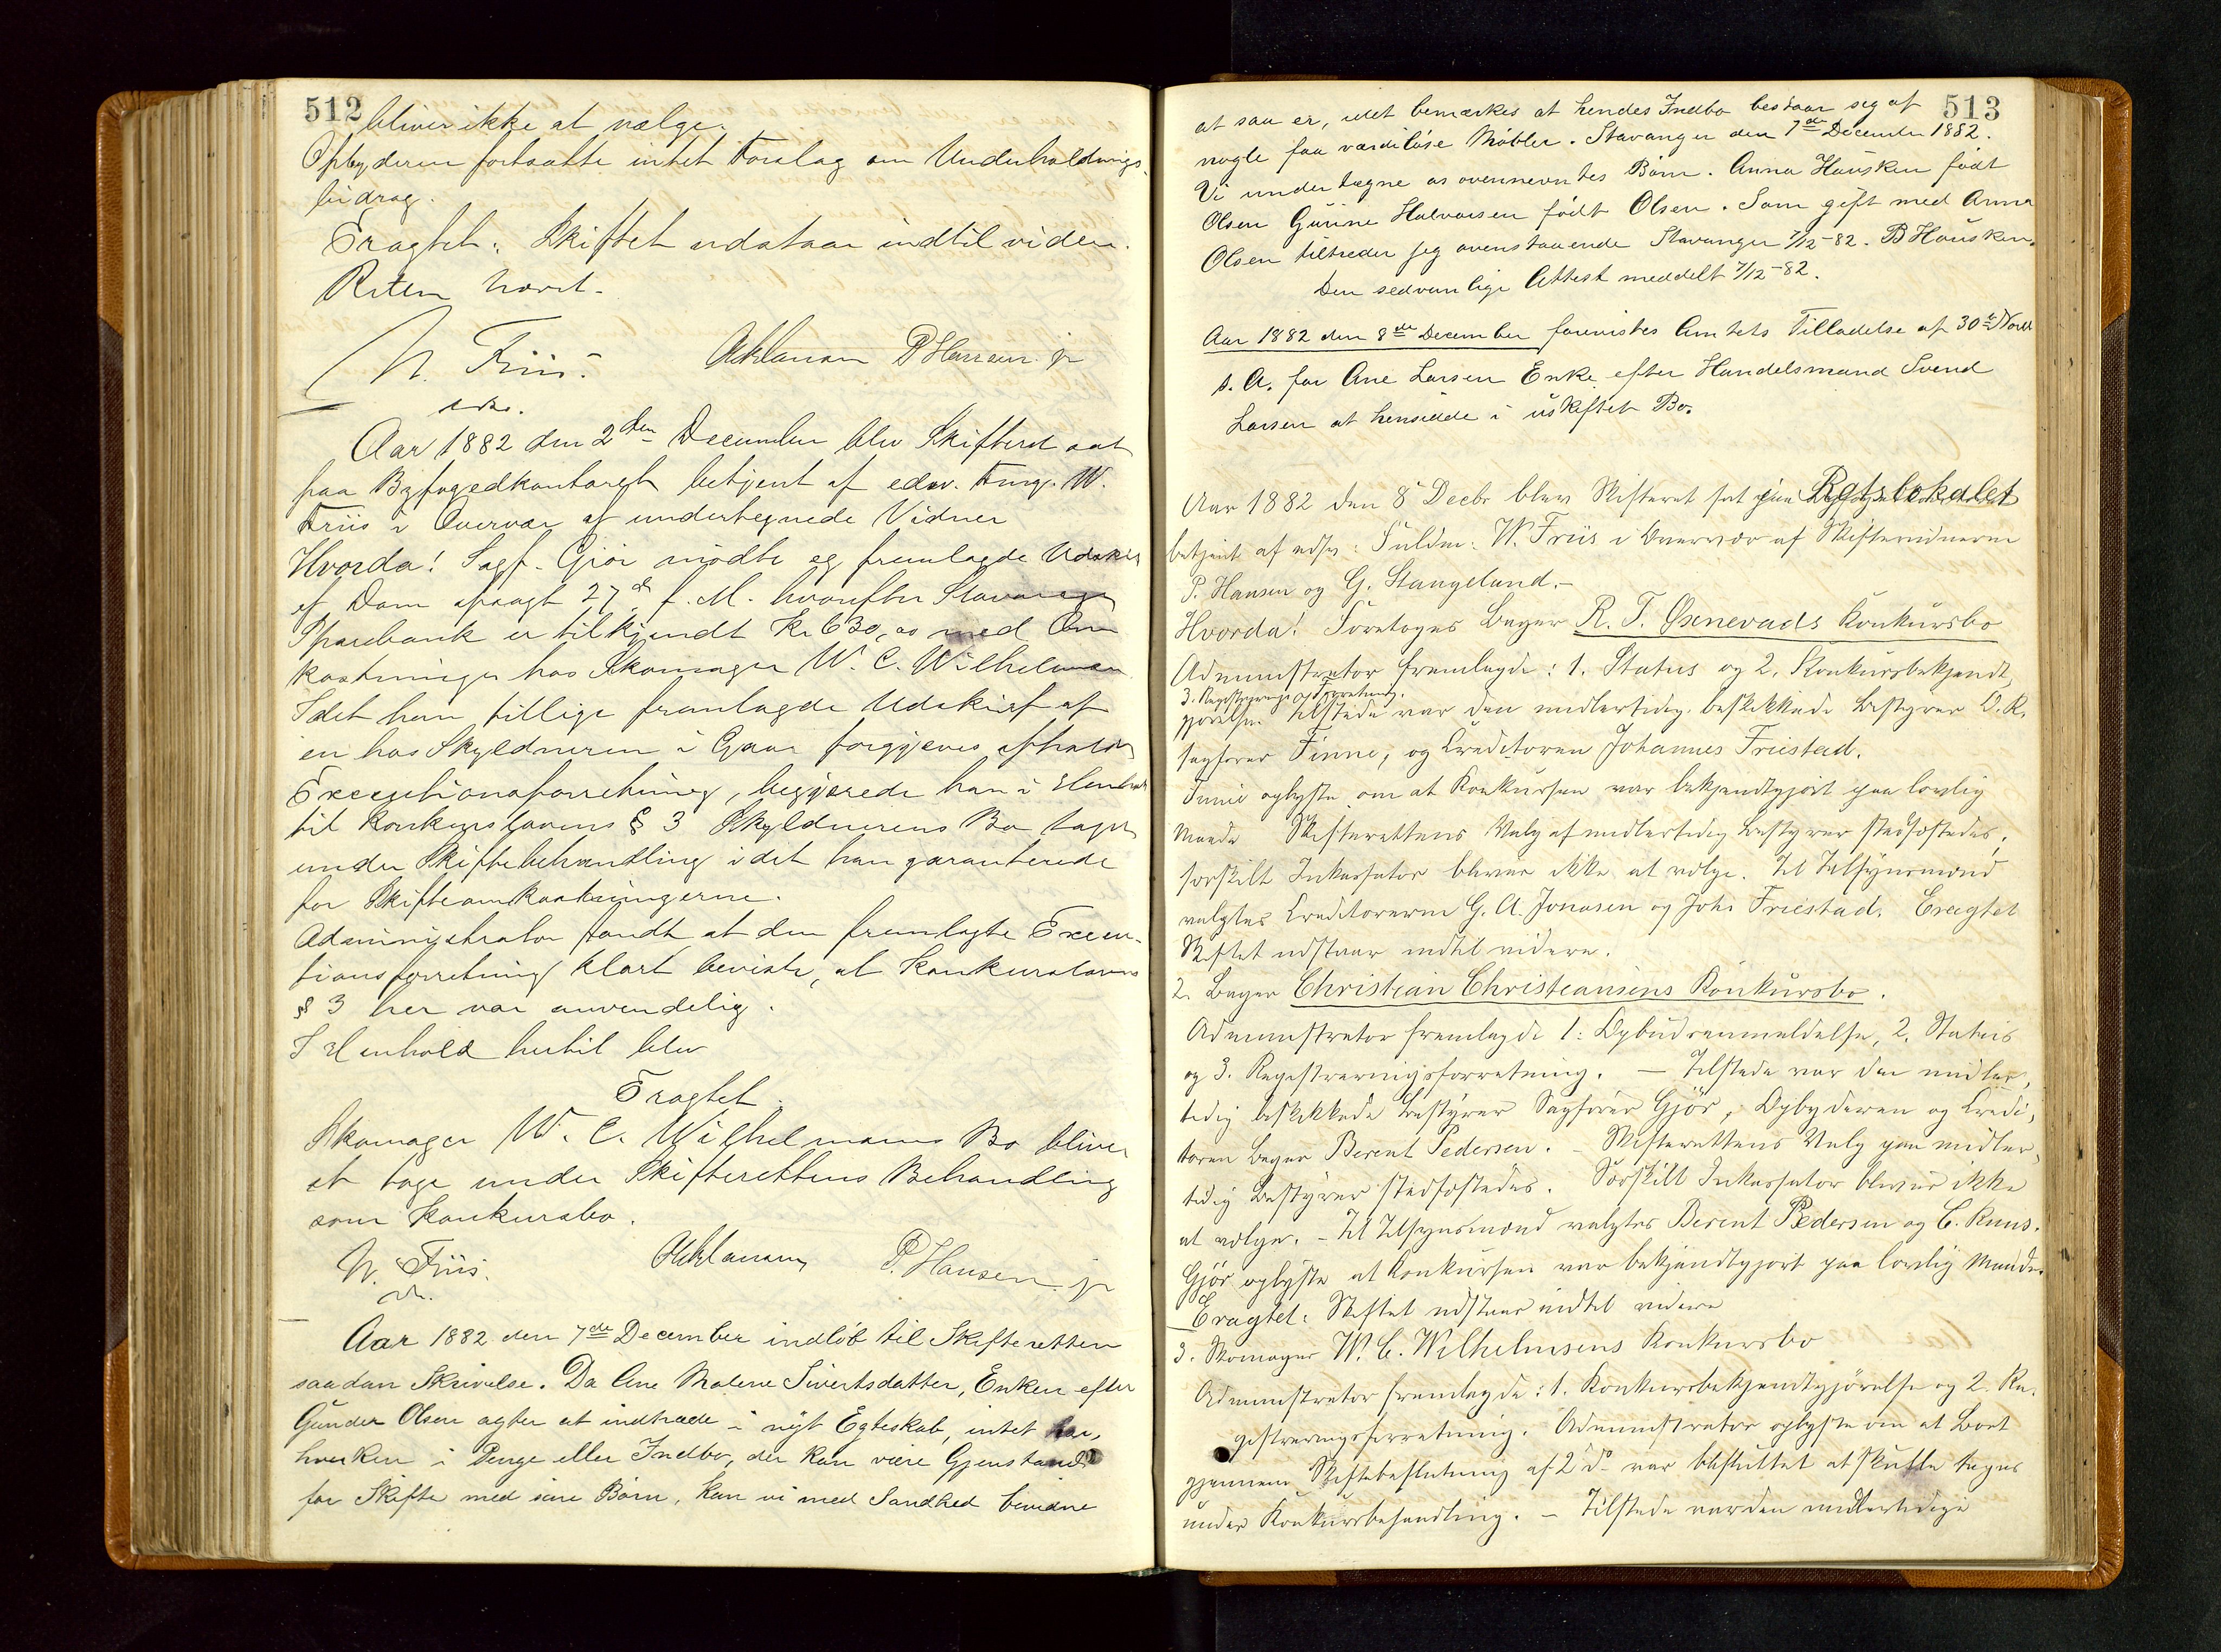 512
bliver ikke at vælge.
Opbyderen fortsatte intet Forslag om Underholdnings-
bidrag.
Eragtet: Skiftet udstaar indtil videre.
Retten hævet.
W. Friis. P Hansen jr
Aar 1882 den 2den December blev Skifteret sat
paa Byfogedkontoret betjent af edsv. Fmg. W.
Friis i Overvær af undertegnede Vidner
Hvorda! Sagf. Gjør mødte og fremlagde Udskrift
af Dom afsagt 27de f. M. hvorefter Stavanger
Sparebank er tilkjendt Kr 630,00 med Om
kostninger hos Skomager W. C. Wilhelmsen
Idet han tillige fremlagde Udskrift af
en hos Skyldneren i Gaar forgjæves afholdt
Executionsforretning, begjærede han i Henhold
til Konkurslovens § 3 Skyldnerens Bo taget
under Skiftebehandling idet han garanterede
for Skifteomkostningerne.
Administrator fandt at den fremlagte Execu-
tionsforretning klart beviste, at Konkurslovens
§ 3 her var anvendelig.
I Henhold hertil blev
Eragtet.
Skomager W. C. Wilhelmsens Bo bliver
at tage under Skifterettens Behandling
som Konkursbo.
W. Friis. P. Hansen jr
Aar 1882 den 7de December indløb til Skifteretten
saadan Skrivelse. Da Ane Malene Sivertsdatter, Enken efter
Gunder Olsen agter at indtræde i nyt Egteskab, intet har,
hverken i Penge eller Indbo, der kan være Gjenstand
for Skifte med sine Børn, kan vi med Sandhed bevidne
513
at saa er, idet bemærkes at hendes Indbo bestaar seg af
nogle faa værdiløse Møbler. Stavanger den 7de December 1882.
Vi undertegne os ovennevntes Børn. Anna Hausken født
Olsen Gurine Halvorsen født Olsen. Som gift med Anna
Olsen tiltreder jeg ovenstaaende Stavanger 7/12-82. B Hausken.
Den sedvanlige Attest meddelt 7/12-82.
Aar 1882 den 8de December forevistes Amtets Tilladelse af 30te Novbr
s. A. for Ane Larsen Enke efter Handelsmand Svend
Larsen at hensidde i uskiftet Bo.
Aar 1882 den 8 Decbr blev Skifteret sat paa Retslokalet
betjent af edsv: Fuldm: W. Friis i Overvær af Skiftevidnerne
P. Hansen og G. Stangeland.-
Hvorda! Foretoges Bager R. T. Oxnevads Konkursbo
Administrator fremlagde: 1. Status og 2. Konkursbekjendt,
3. Registreringsforretning.
gjørelse. Tilstede var den midlertidig beskikkede Bestyrer O.R.
sagfører Finne, og Creditoren Johannes Friestad.
Finne oplyste om at Konkursen var bekjendtgjort paa lovlig
Maade Skifterettens Valg af midlertidig Bestyrer stadfæstedes,
særskilt Inkassator bliver ikke at vælge. Til Tilsynsmænd
valgtes Creditorerne G. A. Jonasen og Johs Friestad. Eragtet
Skiftet udstaar indtil videre.
2. Bager Christian Christiansens Konkursbo.
Administrator fremlagde 1. Opbudsanmeldelse, 2. Status
og 3. Registreringsforretning. — Tilstede var den midler,
tidig beskikkede Bestyrer Sagfører Gjør, Opbyderen og Credi,
toren Bager Berent Pedersen. - Skifterettens Valg paa midler,
tidig Bestyrer stadfæstedes. Særskilt Inkassator bliver ikke
at vælge. - Til Tilsynsmænd valgtes Berent Pedersen og C. Runs.
Gjør oplyste at Konkursen var bekjendtgjort paa lovlig Maade.
Eragtet: Skiftet udstaar indtil videre
3. Skomager W. C. Wilhelmsens Konkursbo
Administrator fremlagde: 1. Konkursbekjendtgjørelse og 2. Re,
gistreringsforretning. Administrator oplyste om at Boet
gjennem Skiftebeslutning af 2 ds var besluttet at skulle tages
under Konkursbehandling. - Tilstede var den midlertidige